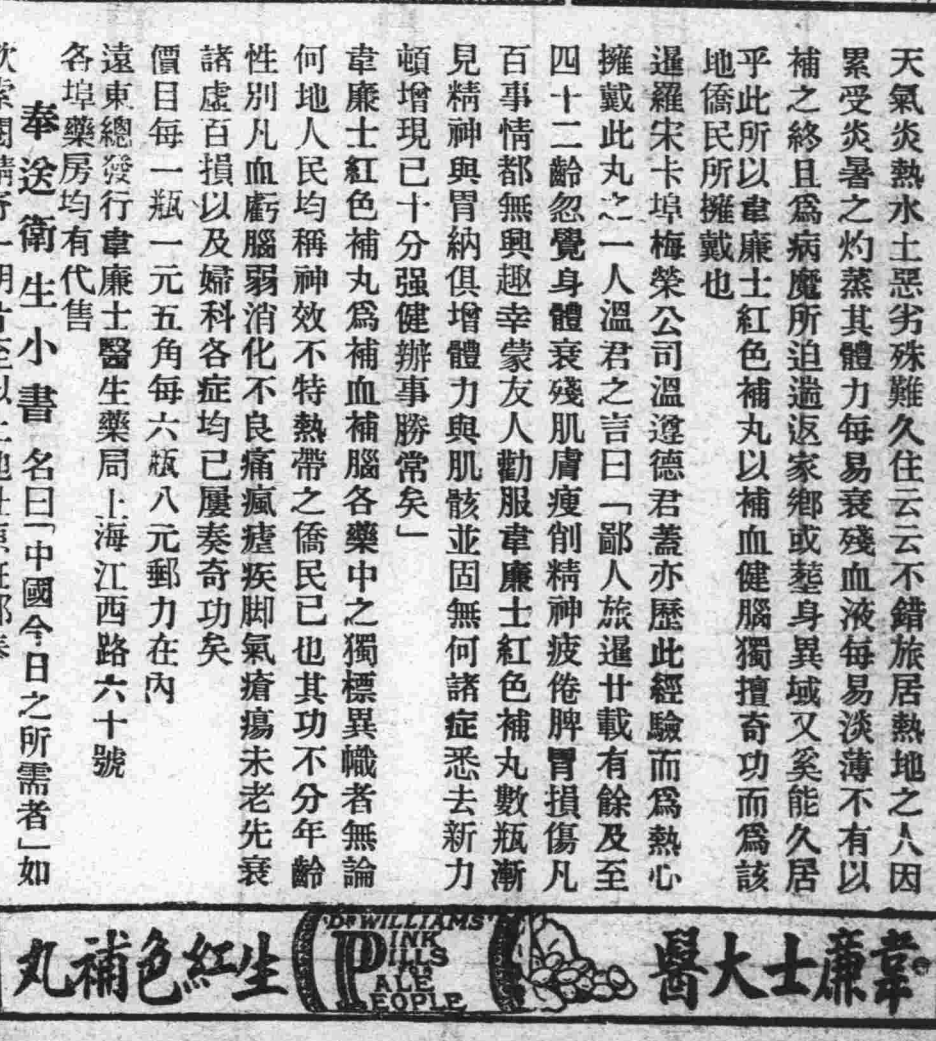 天氣炎熱水土惡劣殊難久住云云不錯旅居熱地之人因
累受炎暑之灼蒸其體力每易衰殘血液每易淡薄不有以
補之終且爲病魔所迫遄返家鄉或塟身異域又奚能久居
乎此所以韋廉士紅色補丸以補血健腦獨擅奇功而爲該
地僑民所擁戴也
暹羅宋卡埠梅榮公司溫遵德君蓋亦歷此經驗而爲熱心
擁戴此丸之一人溫君之言曰「鄙人旅暹廿載有餘及至
四十二齡忽覺身體衰殘肌膚瘦削精神疲倦脾胃損傷凡
百事情都無興趣幸蒙友人勸服韋廉士紅色補丸數瓶漸
見精神與胃納俱增體力與肌骸並固無何諸症悉去新力
頓增現已十分强健辦事勝常矣」
韋廉士紅色補丸爲補血補腦各藥中之獨標異幟者無論
何地人民均稱神效不特熱帶之僑民已也其功不分年齡
性別凡血虧腦弱消化不良痛瘋瘧疾脚氣瘡瘍未老先衰
諸虛百損以及婦科各症均已屢奏奇功矣
價目每一瓶一元五角每六瓶八元郵力在內
遠東總發行韋廉士醫生藥局上海江西路六十號
各埠藥房均有代售
奉送衛生小書名曰「中國今日之所需者」如
韋廉士大醫生紅色補丸
DR WILLIAMS'
PINK
PILLS
FOR
PALE
PEOPLE